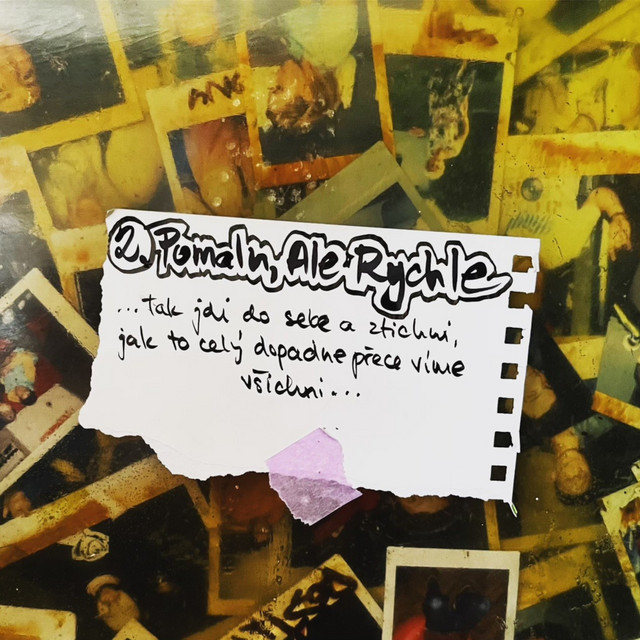 2. Pomalu, Ale Rychle
...tak jdi do sebe a ztichni,
jak to celý dopadne přece víme
všichni...